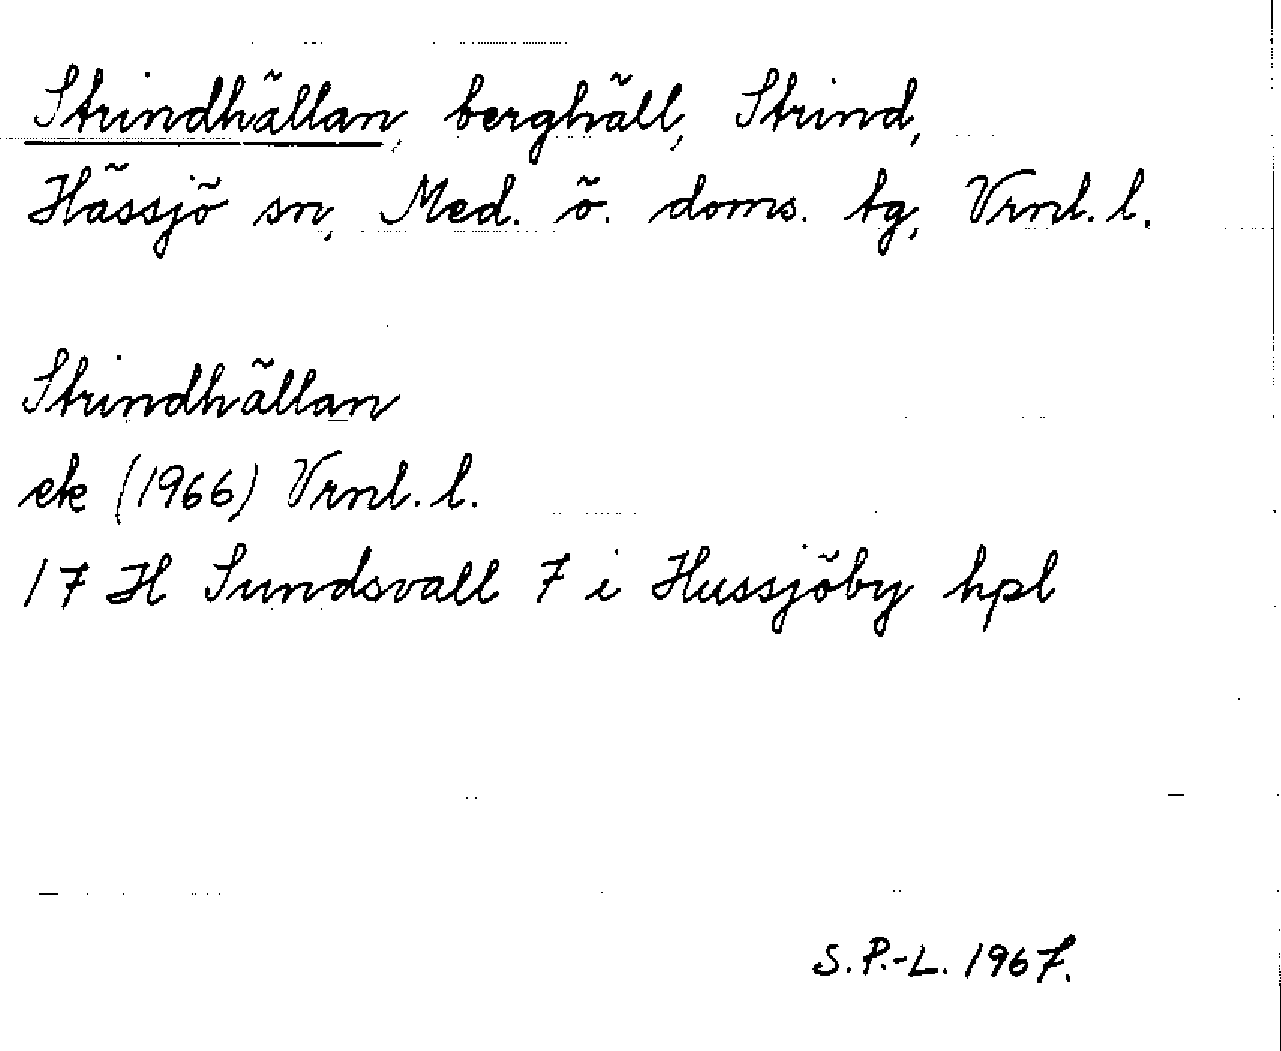 Strindhällan, berghäll, Strind,
Hässjö sn, Med. ö. doms. tg, Vrnl. l.
Strindhällan
ek (1966) Vrnl. l.
17 H Sundsvall 7 i Hussjöby hpl
S. P.-L. 1967.